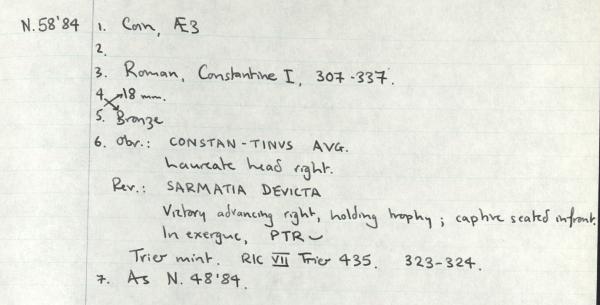 N.58'84 1. Coin, Æ3
2.
3. Roman, Constantine I, 307-337.
4. 18 mm.
5. Bronze
6. Obv.: CONSTAN-TINVS AVG.
Laureate head right.
Rev.: SARMATIA DEVICTA
Victory advancing right, holding trophy; captive seated in front.
In exergue, PTR⌣
Trier mint. RIC VII Trier 435. 323-324.
7. As N. 48'84.